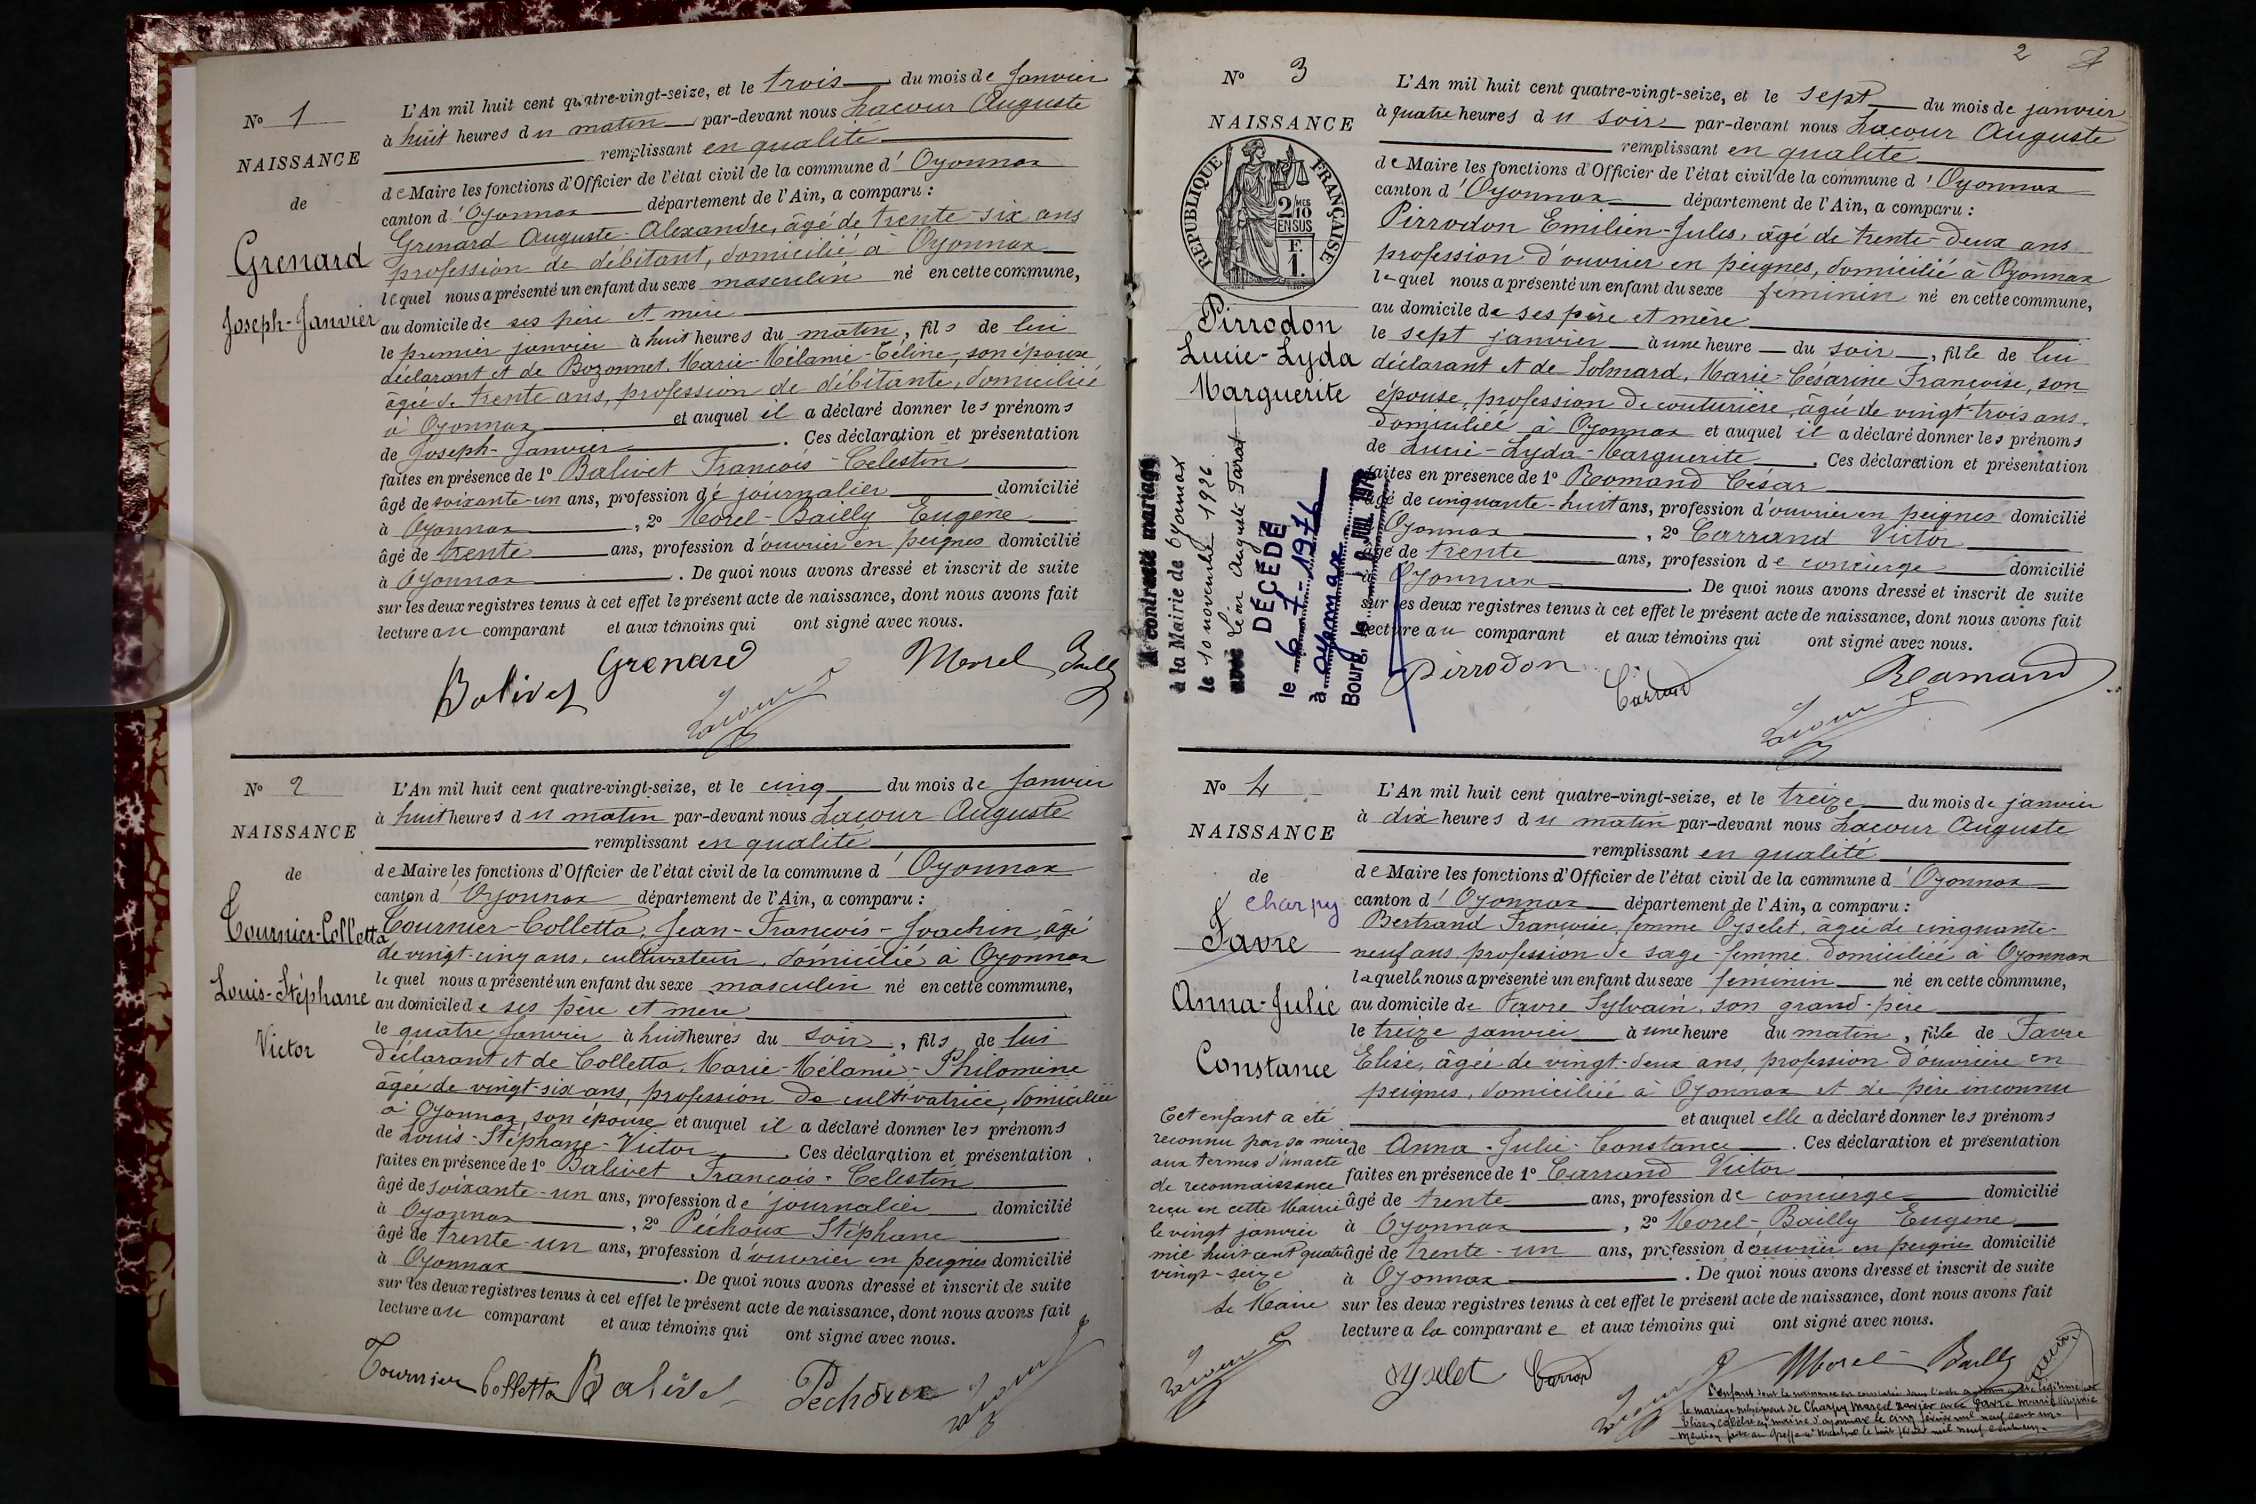 N° 1
NAISSANCE
de
Grenard
Joseph-Janvier
L'An mil huit cent quatre-vingt-seize, et le trois du mois de Janvier
à huit heures du matin par-devant nous Lacour Auguste
remplissant en qualité
de Maire les fonctions d'Officier de l'état civil de la commune d'Oyonnax
canton d'Oyonnax département de l'Ain, a comparu :
Grenard Auguste-Alexandre, âgé de trente-six ans
profession de débitant, domicilié à Oyonnax
lequel nous a présenté un enfant du sexe masculin né en cette commune,
au domicile de ses père et mère
le premier janvier à huit heures du matin, fils de lui
déclarant et de Bozonnet, Marie-Mélanie-Céline, son épouse
âgée de trente ans, profession de débitante, domiciliée
à Oyonnax et auquel il a déclaré donner les prénoms
de Joseph-Janvier. Ces déclaration et présentation
faites en présence de 1° Balivet François-Célestin
âgé de soixante-un ans, profession de journalier domicilié
à Oyonnax, 2° Morel-Bailly Eugène
âgé de trente ans, profession d'ouvrier en peignes domicilié
à Oyonnax. De quoi nous avons dressé et inscrit de suite
sur les deux registres tenus à cet effet le présent acte de naissance, dont nous avons fait
lecture au comparant et aux témoins qui ont signé avec nous.
Balivet Grenard Morel Bailly
Lacour
N° 2
NAISSANCE
de
Tournier-Colletta
Louis-Stéphane
Victor
L'An mil huit cent quatre-vingt-seize, et le cinq du mois de Janvier
à huit heures du matin par-devant nous Lacour Auguste
remplissant en qualité
de Maire les fonctions d'Officier de l'état civil de la commune d'Oyonnax
canton d'Oyonnax département de l'Ain, a comparu :
Tournier-Colletta, Jean-François-Joachin, âgé
de vingt-cinq ans, cultivateur, domicilié à Oyonnax
lequel nous a présenté un enfant du sexe masculin né en cette commune,
au domicile de ses père et mère
le quatre Janvier à huit heures du soir, fils de lui
déclarant et de Colletta, Marie-Mélanie-Philomine
âgée de vingt-six ans, profession de cultivatrice, domiciliée
à Oyonnax, son épouse et auquel il a déclaré donner les prénoms
de Louis-Stéphane-Victor. Ces déclaration et présentation
faites en présence de 1° Balivet François-Célestin
âgé de soixante-un ans, profession de journalier domicilié
à Oyonnax, 2° Péchoux Stéphane
âgé de trente-un ans, profession d'ouvrier en peignes domicilié
à Oyonnax. De quoi nous avons dressé et inscrit de suite
sur les deux registres tenus à cet effet le présent acte de naissance, dont nous avons fait
lecture au comparant et aux témoins qui ont signé avec nous.
Tournier Colletta Balivet Péchoux Lacour
2
N° 3
NAISSANCE
RÉPUBLIQUE FRANÇAISE
2/10 MES
EN SUS
F.
1.
Pirrodon
Lucie-Lyda
Marguerite
A contracté mariage
à la Mairie de Oyonnax
le 10 novembre 1926.
avec Léon Auguste Tarat
DÉCÉDÉ
le 6-7-1976
à Oyonnax
Bourg, le 9 JUIL 1976
L'An mil huit cent quatre-vingt-seize, et le sept du mois de janvier
à quatre heures du soir par-devant nous Lacour Auguste
remplissant en qualité
de Maire les fonctions d'Officier de l'état civil de la commune d'Oyonnax
canton d'Oyonnax département de l'Ain, a comparu :
Pirrodon Emilien-Jules, âgé de trente-deux ans
profession d'ouvrier en peignes, domicilié à Oyonnax
lequel nous a présenté un enfant du sexe féminin né en cette commune,
au domicile de ses père et mère
le sept janvier à une heure du soir, fille de lui
déclarant et de Solmard, Marie-Césarine Françoise, son
épouse, profession de couturière, âgée de vingt-trois ans,
domiciliée à Oyonnax et auquel il a déclaré donner les prénoms
de Lucie-Lyda-Marguerite. Ces déclaration et présentation
faites en présence de 1° Romand César
âgé de cinquante-huit ans, profession d'ouvrier en peignes domicilié
Oyonnax, 2° Carrand Victor
âgé de trente ans, profession de concierge domicilié
à Oyonnax. De quoi nous avons dressé et inscrit de suite
sur les deux registres tenus à cet effet le présent acte de naissance, dont nous avons fait
lecture au comparant et aux témoins qui ont signé avec nous.
Pirrodon Carrand Romand
Lacour
N° 4
NAISSANCE
de
Charpy
Favre
Anna-Julie
Constance
Cet enfant a été
reconnu par sa mère
aux termes d'un acte
de reconnaissance
reçu en cette Mairie
le vingt janvier
mil huit cent quatre
vingt-seize
Le Maire
Lacour
L'An mil huit cent quatre-vingt-seize, et le treize du mois de janvier
à dix heures du matin par-devant nous Lacour Auguste
remplissant en qualité
de Maire les fonctions d'Officier de l'état civil de la commune d'Oyonnax
canton d'Oyonnax département de l'Ain, a comparu :
Bertrand Françoise, femme Oyselet, âgée de cinquante-
neuf ans, profession de sage-femme, domiciliée à Oyonnax
laquelle nous a présenté un enfant du sexe féminin né en cette commune,
au domicile de Favre Sylvain, son grand-père
le treize janvier à une heure du matin, fille de Favre
Elise, âgée de vingt-deux ans, profession d'ouvrière en
peignes, domiciliée à Oyonnax et de père inconnu
et auquel elle a déclaré donner les prénoms
de Anna-Julie-Constance. Ces déclaration et présentation
faites en présence de 1° Carrand Victor
âgé de trente ans, profession de concierge domicilié
à Oyonnax, 2° Morel-Bailly Eugène
âgé de trente-un ans, profession d'ouvrier en peignes domicilié
à Oyonnax. De quoi nous avons dressé et inscrit de suite
sur les deux registres tenus à cet effet le présent acte de naissance, dont nous avons fait
lecture a la comparante et aux témoins qui ont signé avec nous.
Oyselet Carrand Morel Bailly
Lacour
L'enfant dont la naissance est constatée dans l'acte a été légitimé par
le mariage subséquent de Charpy Marcel Xavier avec Favre Marie Virginie
Elise, célébré en mairie d'Oyonnax le cinq février mil neuf cent un.
Mention faite au Greffe le huit février mil neuf cent un.